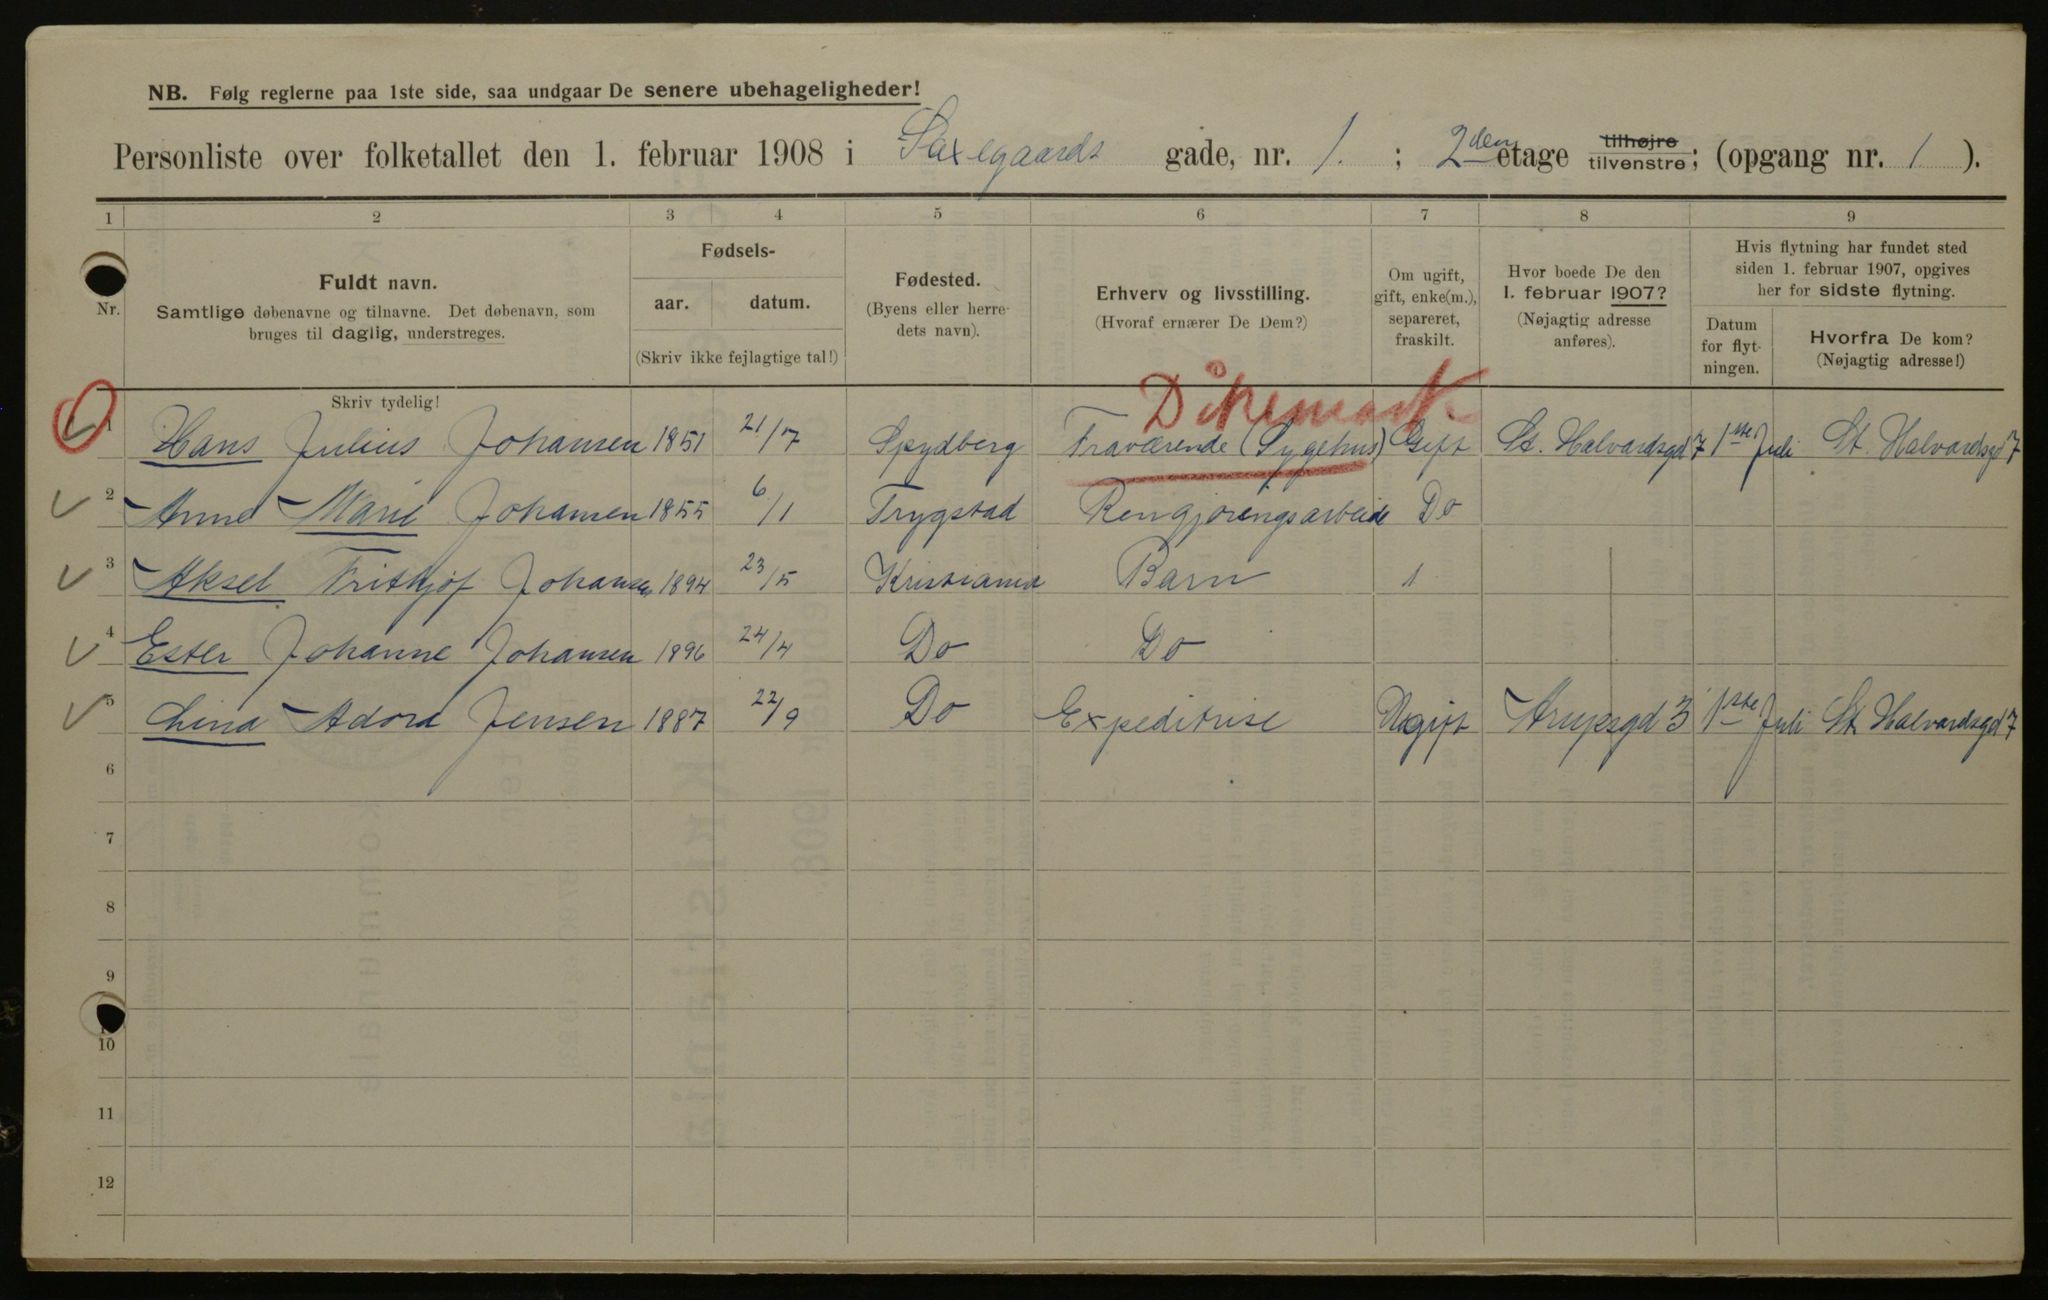 NB. Følg reglerne paa 1ste side, saa undgaar De senere ubehageligheder!
Personliste over folketallet den 1. februar 1908 i Saxegaards gade, nr. 1. ; 2den etage tilhøjre tilvenstre; (opgang nr. 1 ).
1 2 3 4 5 6 7 8 9
Nr.
Fuldt navn.
Samtlige døbenavne og tilnavne. Det døbenavn, som
bruges til daglig, understreges.
Fødsels-
aar. datum.
(Skriv ikke fejlagtige tal!)
Fødested.
(Byens eller herre-
dets navn).
Erhverv og livsstilling.
(Hvoraf ernærer De Dem?)
Om ugift,
gift, enke(m.),
separeret,
fraskilt.
Hvor boede De den
1. februar 1907?
(Nøjagtig adresse
anføres).
Hvis flytning har fundet sted
siden 1. februar 1907, opgives
her for sidste flytning.
Datum
for flyt-
ningen.
Hvorfra De kom?
(Nøjagtig adresse!)
Skriv tydelig!
Dikemark
1 Hans Julius Johansen 1851 21/7 Spydberg Fraværende (Sygehus) Gift St. Halvardsgd 7 1ste Juli St. Halvardsgd 7
2 Anne Marie Johansen 1855 6/1 Trygstad Rengjøringsarbeide Do
3 Aksel Frithjof Johansen 1894 23/5 Kristiania Barn
4 Ester Johanne Johansen 1896 24/4 Do Do
5 Lina Adora Jensen 1887 22/9 Do Expeditrise Ugift Arupsgd 3 1ste Juli St. Halvardsgd 7
6
7
8
9
10
11
12